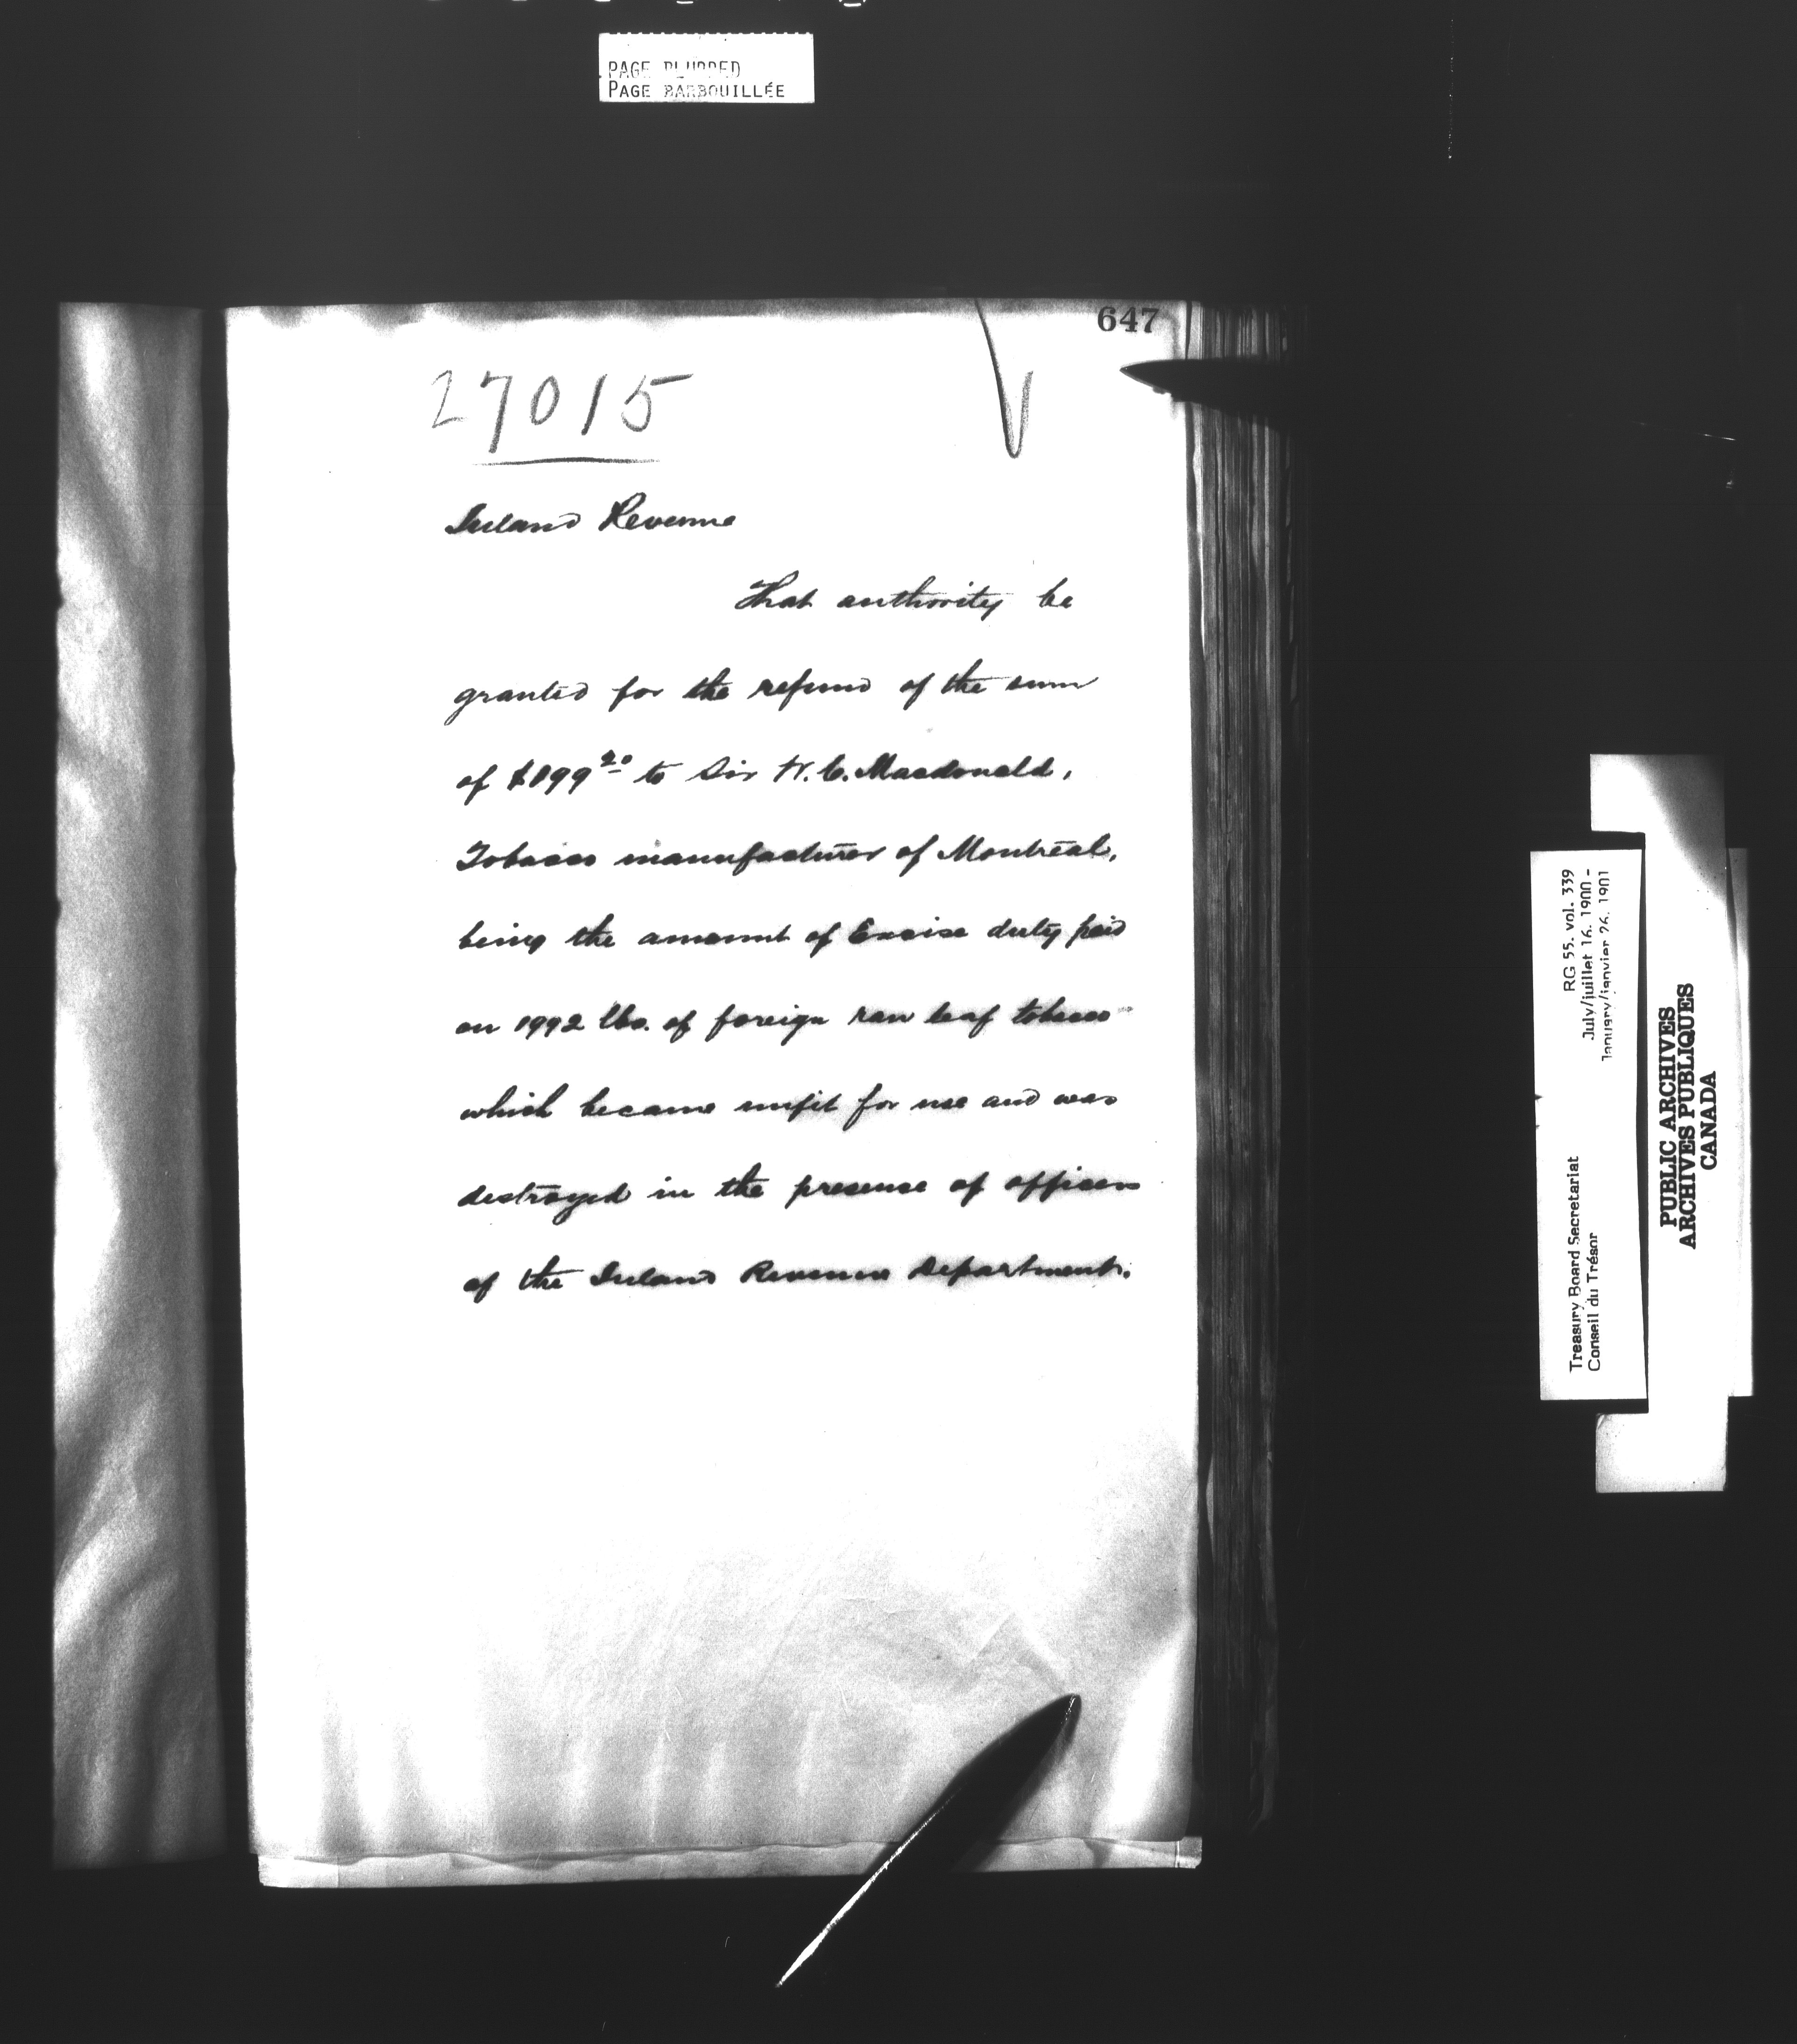 PAGE BLURRED
PAGE BARBOUILLÉE
647
27015
Inland Revenue
That authority be
granted for the refund of the sum
of $199 20 to Sir W. C. Macdonald,
Tobacco manufacturer of Montreal,
being the amount of Excise duty paid
on 1992 lbs. of foreign raw leaf tobacco
which became unfit for use and was
destroyed in the presence of officers
of the Inland Revenue Department.
RG 55, vol. 339
July/juillet 16, 1900 -
January/janvier 26, 1901
Treasury Board Secretariat
Conseil du Trésor
PUBLIC ARCHIVES
ARCHIVES PUBLIQUES
CANADA